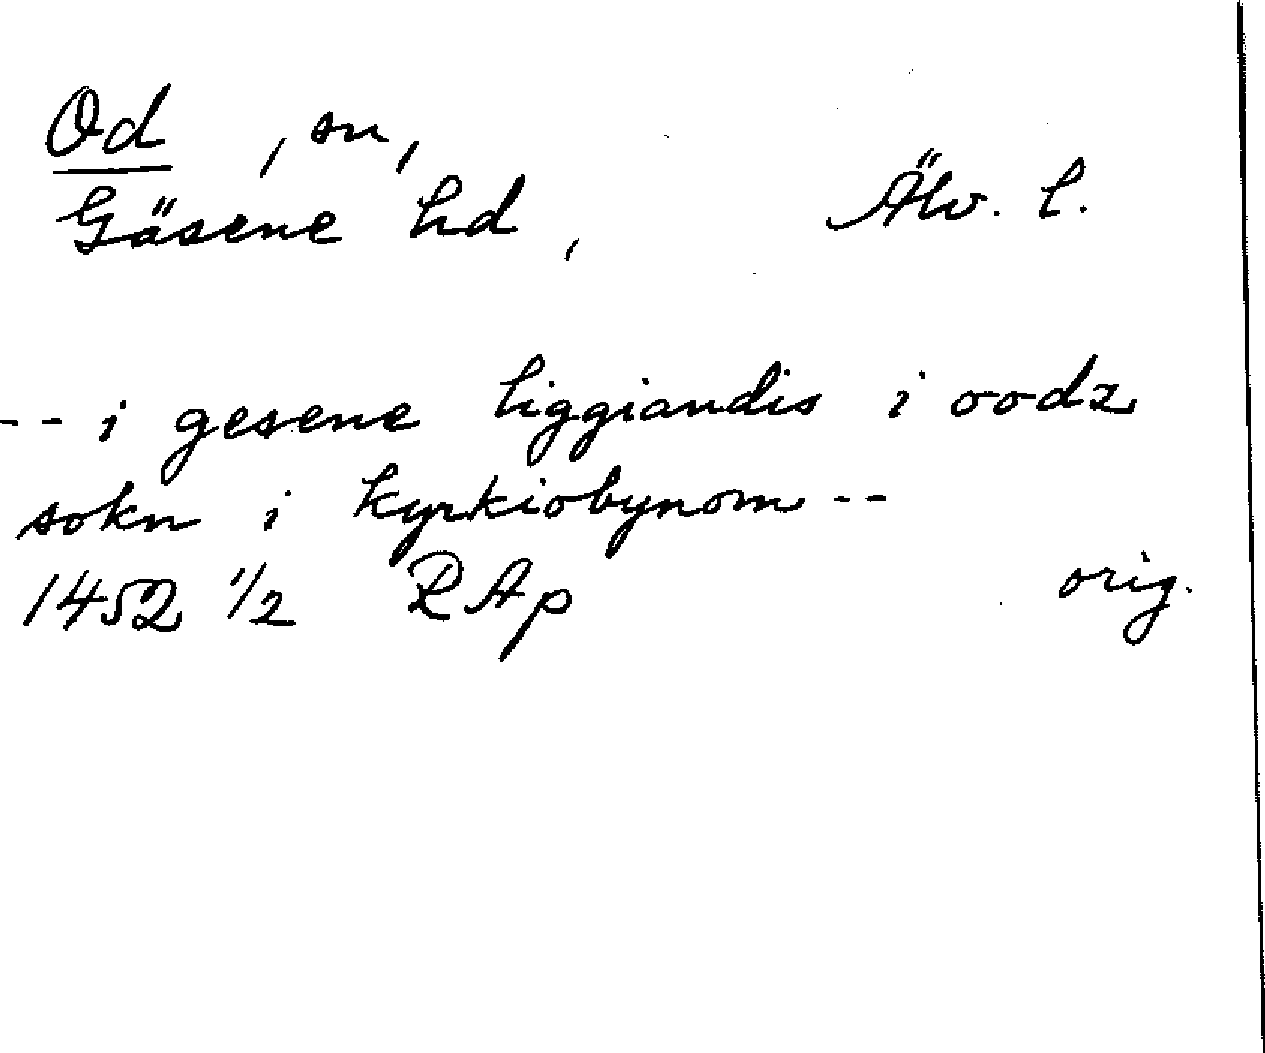 Od , sn,
Gäsene hd , Älv. l.
-- i gesene liggiandis i oodz
sokn i kyrkiobynom --
1452 1/2 RAp orig.